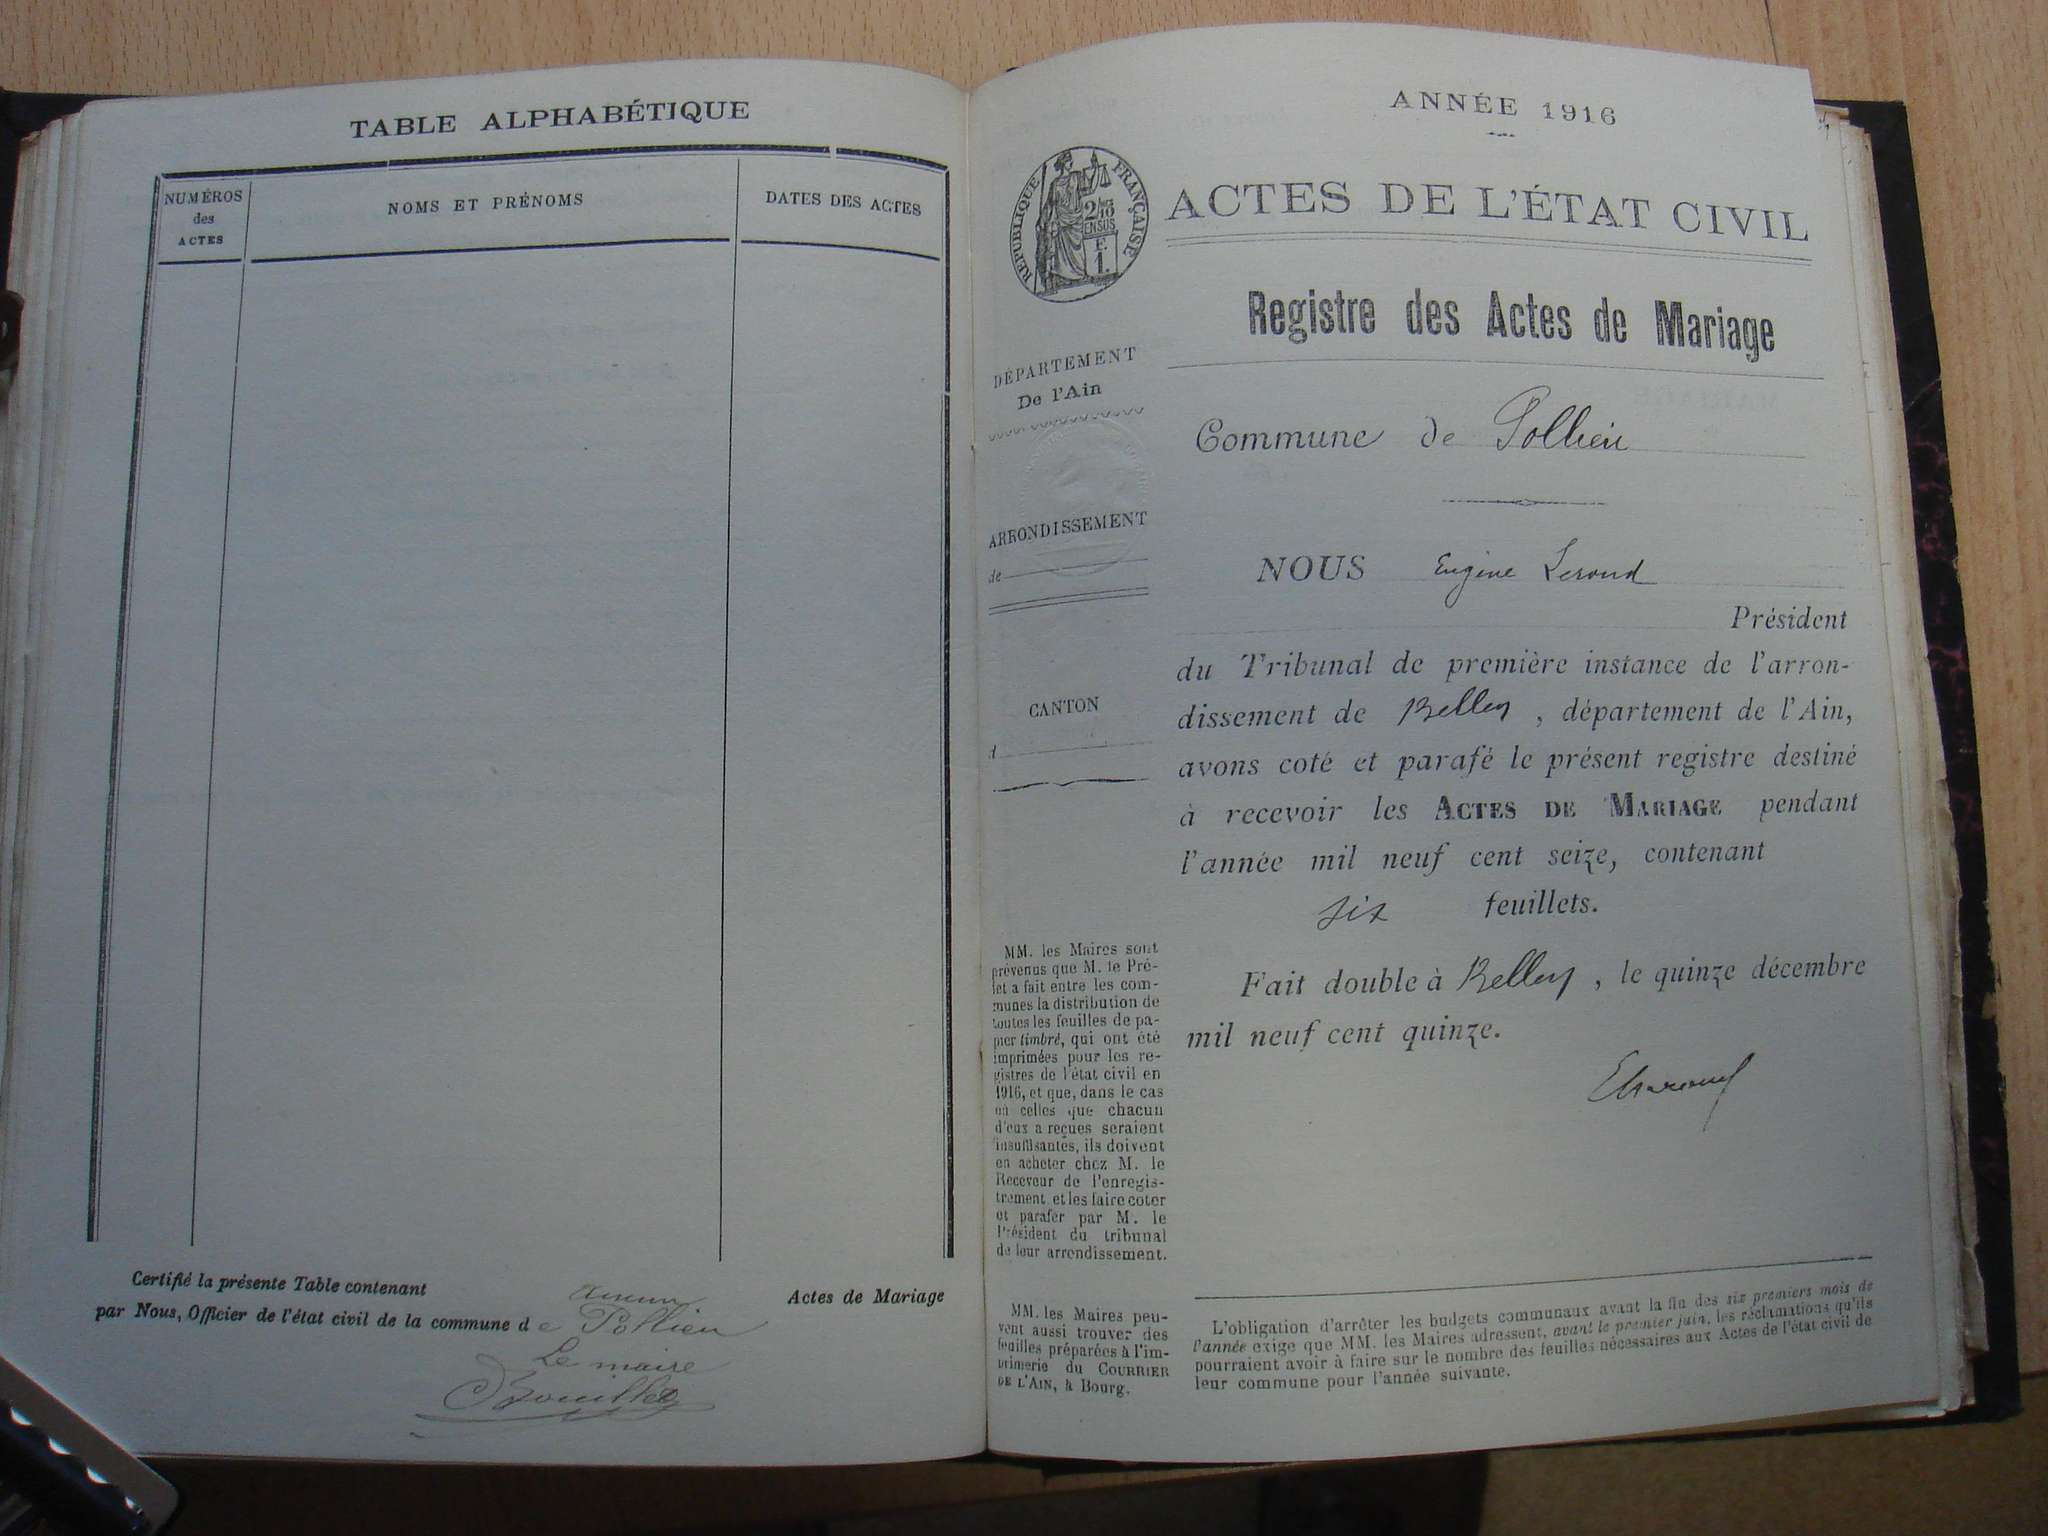 TABLE ALPHABÉTIQUE
NUMÉROS
des
ACTES
NOMS ET PRÉNOMS
DATES DES ACTES
Certifié la présente Table contenant aucun Actes de Mariage
par Nous, Officier de l'état civil de la commune de Pollieu
Le maire
ANNÉE 1916
RÉPUBLIQUE FRANÇAISE
2/10
EN SUS
F.
1.
ACTES DE L'ÉTAT CIVIL
Registre des Actes de Mariage
DÉPARTEMENT
De l'Ain
ARRONDISSEMENT
de
CANTON
d
Commune de Pollieu
NOUS Eugène
Président
du Tribunal de première instance de l'arron-
dissement de Belley, département de l'Ain,
avons coté et parafé le présent registre destiné
à recevoir les ACTES DE MARIAGE pendant
l'année mil neuf cent seize, contenant
six feuillets.
Fait double à Belley, le quinze décembre
mil neuf cent quinze.
MM. les Maires sont
prévenus que M. le Pré-
fet a fait entre les com-
munes la distribution de
toutes les feuilles de pa-
pier timbré, qui ont été
imprimées pour les re-
gistres de l'état civil en
1916, et que, dans le cas
où celles que chacun
d'eux a reçues seraient
insuffisantes, ils doivent
en acheter chez M. le
Receveur de l'enregis-
trement et les faire coter
et parafer par M. le
Président du tribunal
de leur arrondissement.
MM. les Maires peu-
vent aussi trouver des
feuilles préparées à l'im-
primerie du COURRIER
DE L'AIN, à Bourg.
L'obligation d'arrêter les budgets communaux avant la fin des six premiers mois de
l'année exige que MM. les Maires adressent, avant le premier juin, les réclamations qu'ils
pourraient avoir à faire sur le nombre des feuilles nécessaires aux Actes de l'état civil de
leur commune pour l'année suivante.